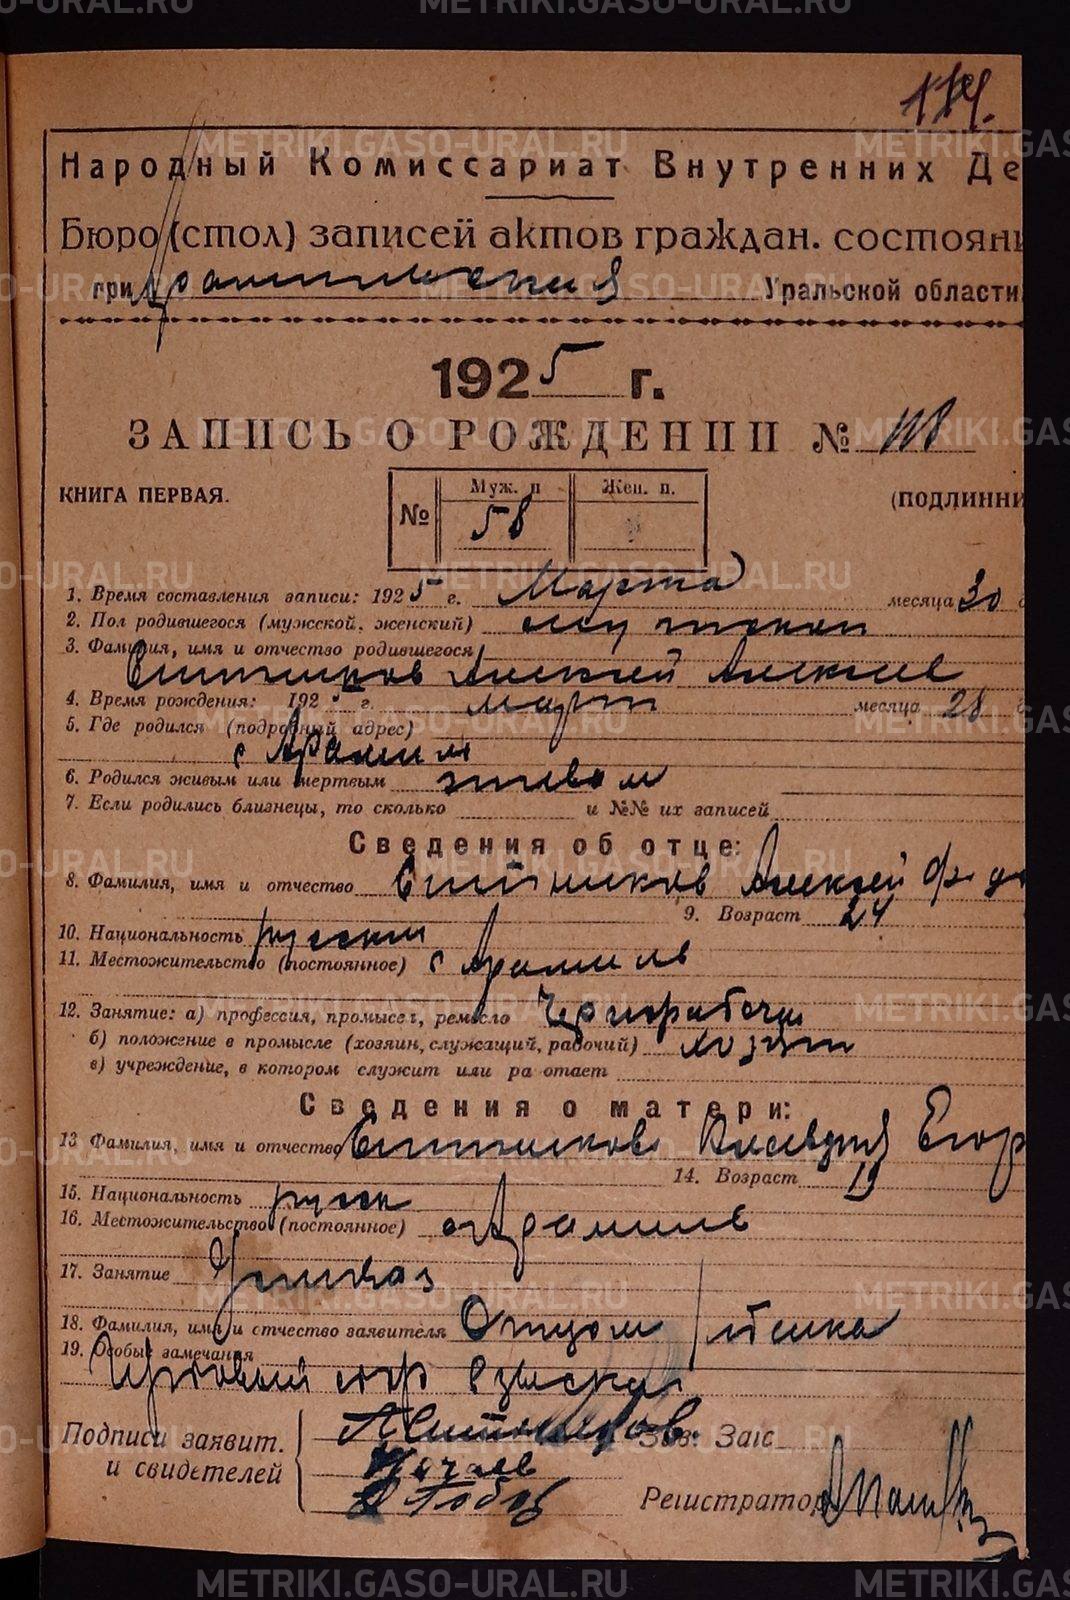 114.
Народный Комиссариат Внутренних Де
Бюро (стол) записей актов граждан. состояни
при Уральской области
1925 г.
ЗАПИСЬ О РОЖДЕНИИ № 118
КНИГА ПЕРВАЯ. (ПОДЛИННИ
№ Муж. п Жен. п.
58
1. Время составления записи: 1925 г. Марта месяца 30
2. Пол родившегося (мужской, женский) мужской
3. Фамилия, имя и отчество родившегося
Ситников Алексей Алексеев
4. Время рождения: 1925 г. март месяца 28
5. Где родился (подробный адрес)
с Арамиль
6. Родился живым или мертвым живым
7. Если родились близнецы, то сколько и №№ их записей
Сведения об отце:
8. Фамилия, имя и отчество Ситников Алексей
9. Возраст 24
10. Национальность русский
11. Местожительство (постоянное) с Арамиль
12. Занятие: а) профессия, промысел, ремесло Чернорабочий
б) положение в промысле (хозяин, служащий, рабочий)
в) учреждение, в котором служит или ра отает
Сведения о матери:
13 Фамилия, имя и отчество Ситникова Клавдия Егор
14. Возраст 19
15. Национальность русск
16. Местожительство (постоянное) с Арамиль
17. Занятие
18. Фамилия, имя и отчество заявителя Отцом
19. Особые замечания
сбор взыскан
Подписи заявит. и свидетелей
АСитников.
Зав. Загс
Регистратор